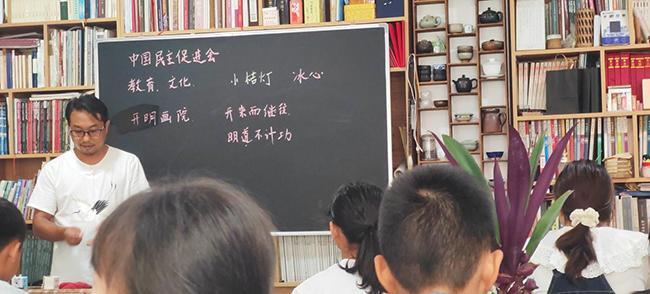 中国民主促进会
教育、文化、 小桔灯 冰心
开明画院 开来而继往
明道不计功